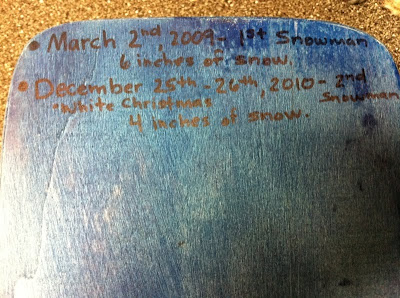 • March 2nd, 2009 - 1st Snowman
6 inches of snow.
• December 25th - 26th, 2010 - 2nd
Snowman
*White Christmas
4 inches of snow.